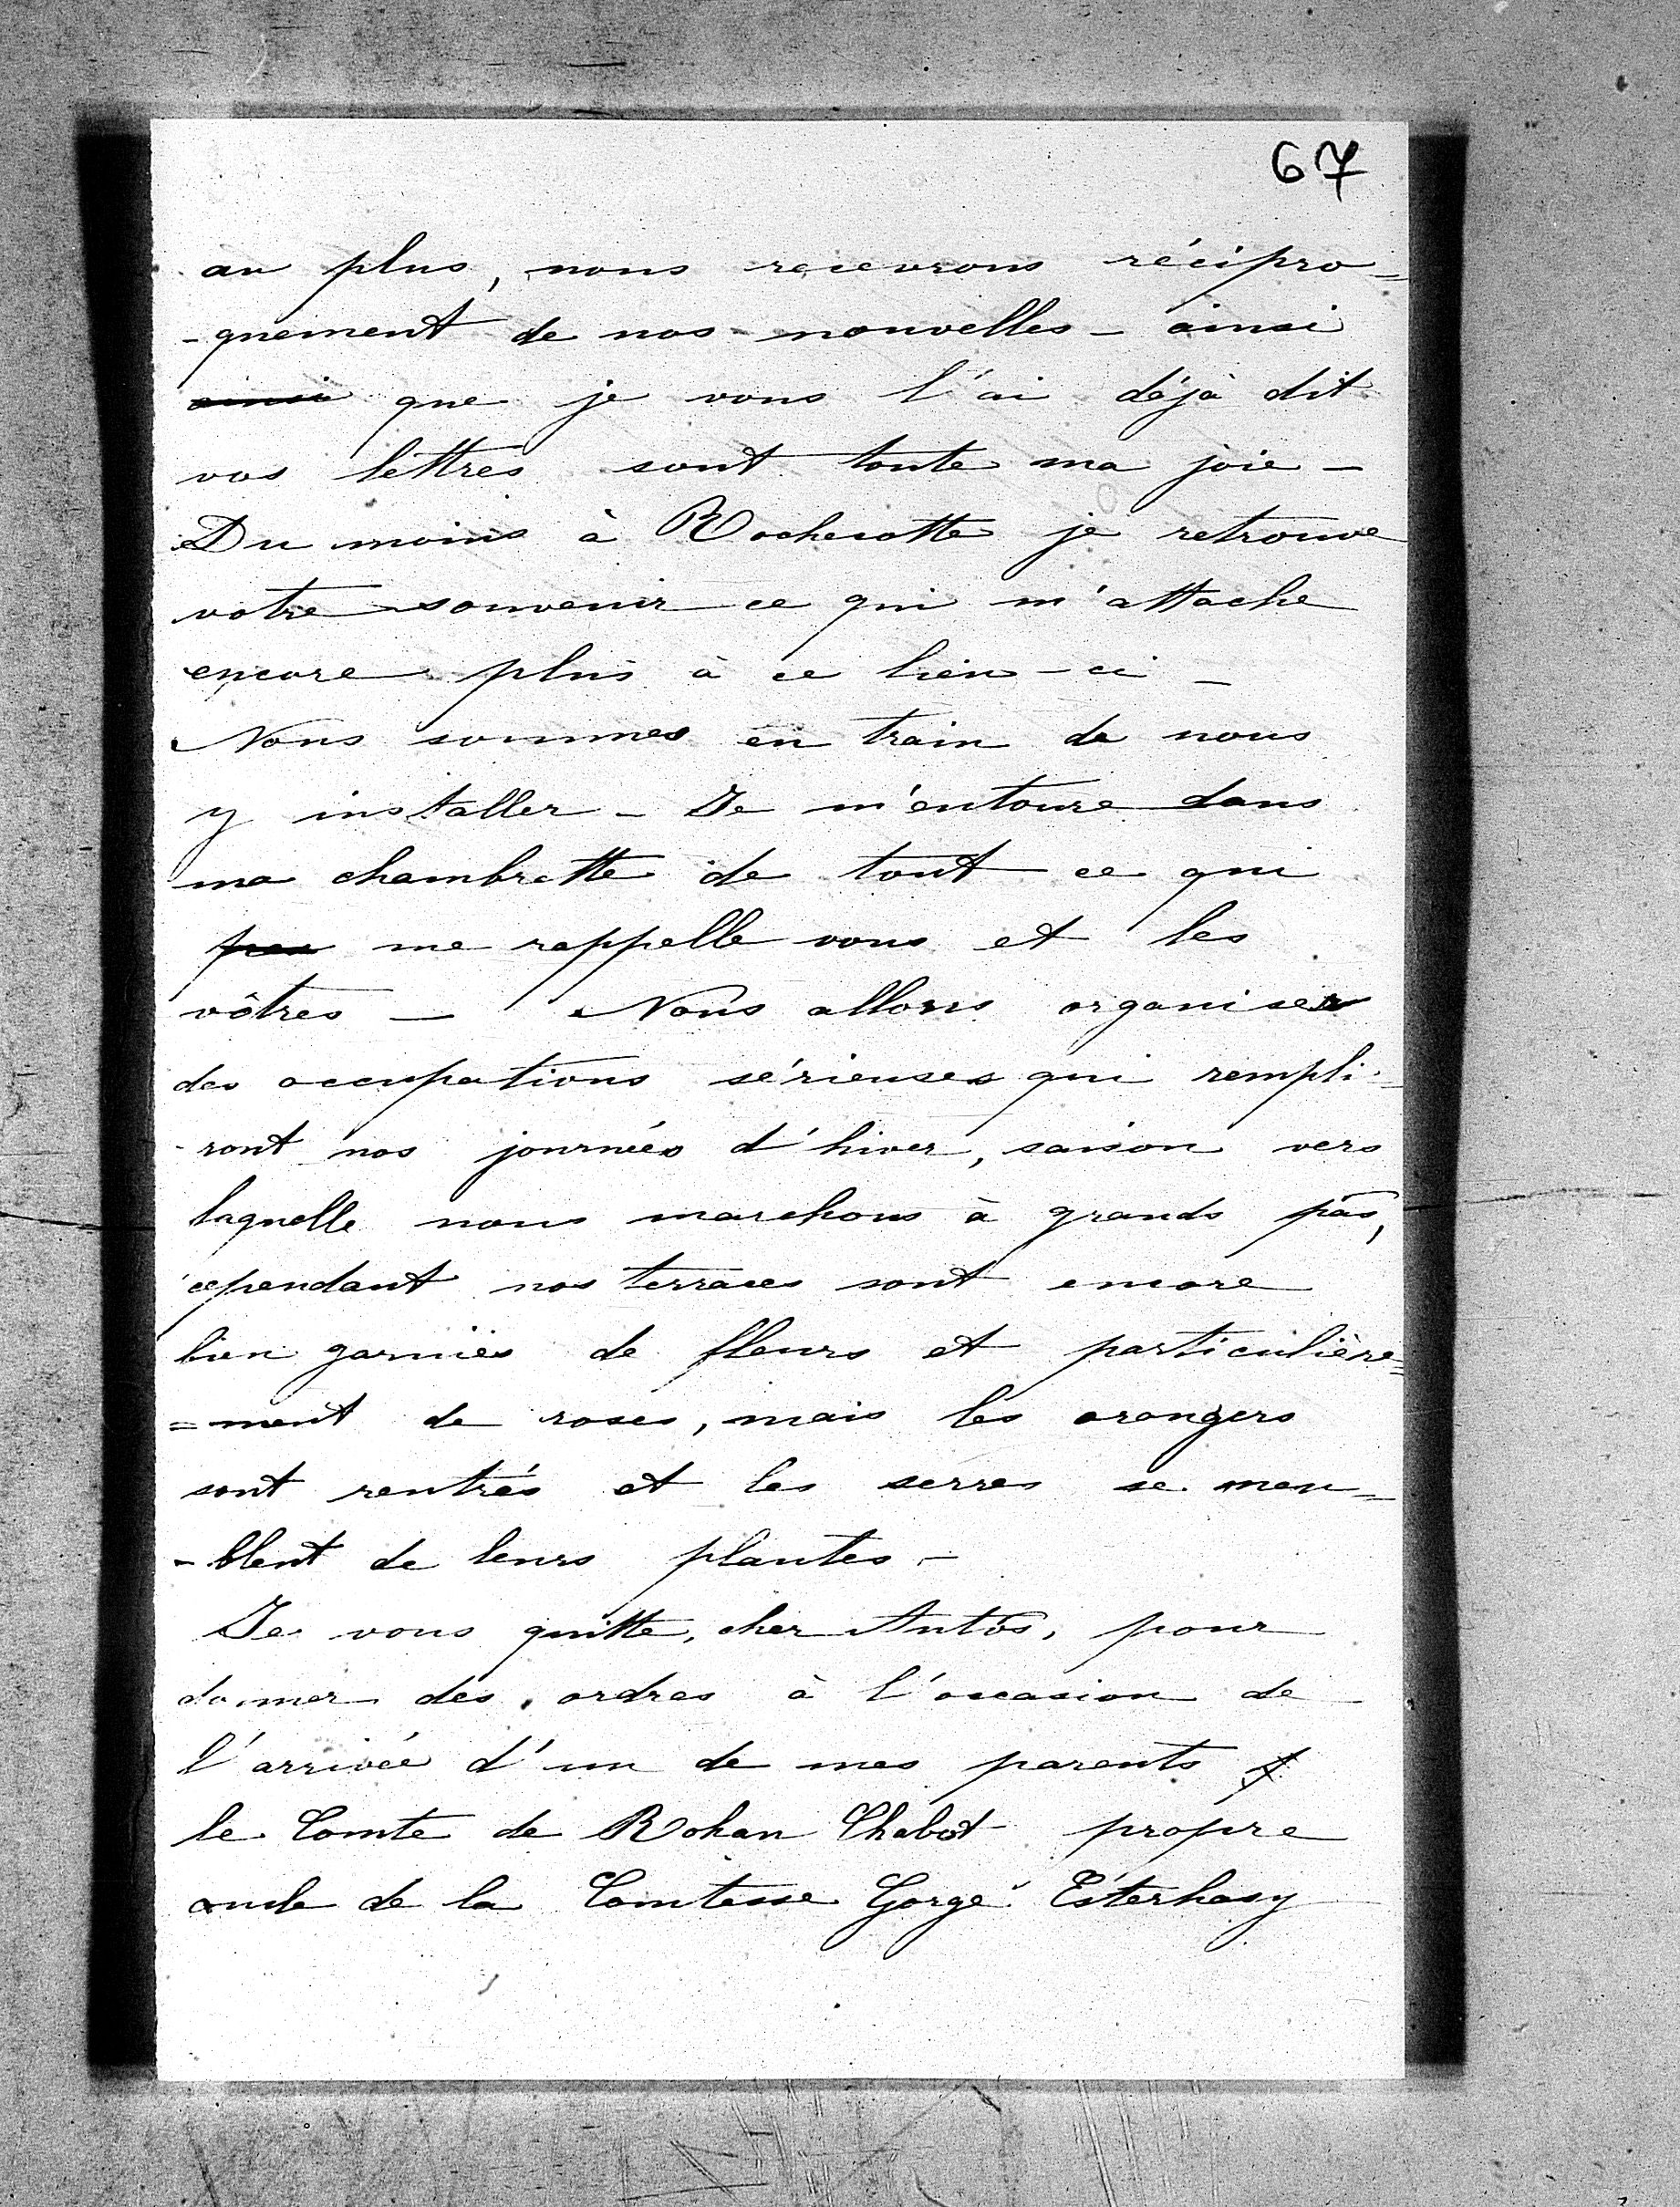 67
au plus, nous recevrons récipro=
-quement de nos nouvelles - ainsi
ainsi que je vous l'ai déjà dit
vos lettres sont toute ma joie -
Du moins à Rochecotte je retrouve
votre souvenir ce qui m'attache
encore plus à ce lieu-ci -
Nous sommes en train de nous
y installer - Je m'entoure dans
ma chambrette de tout ce qui
me rappelle vous et les
vôtres - Nous allons organiser
des occupations sérieuses qui rempli-
-ront nos journées d'hiver, saison vers
laquelle nous marchons à grands pas,
cependant nos terraces sont encore
bien garnies de fleurs et particulière=
=ment de roses, mais les orangers
sont rentrés et les serres se meu=
-blent de leurs plantes -
Je vous quitte, cher Antos, pour
donner des ordres à l'occasion de
l'arrivée d'un de mes parents
le Comte de Rohan Chabot propre
oncle de la Comtesse Gorge Esterhasy